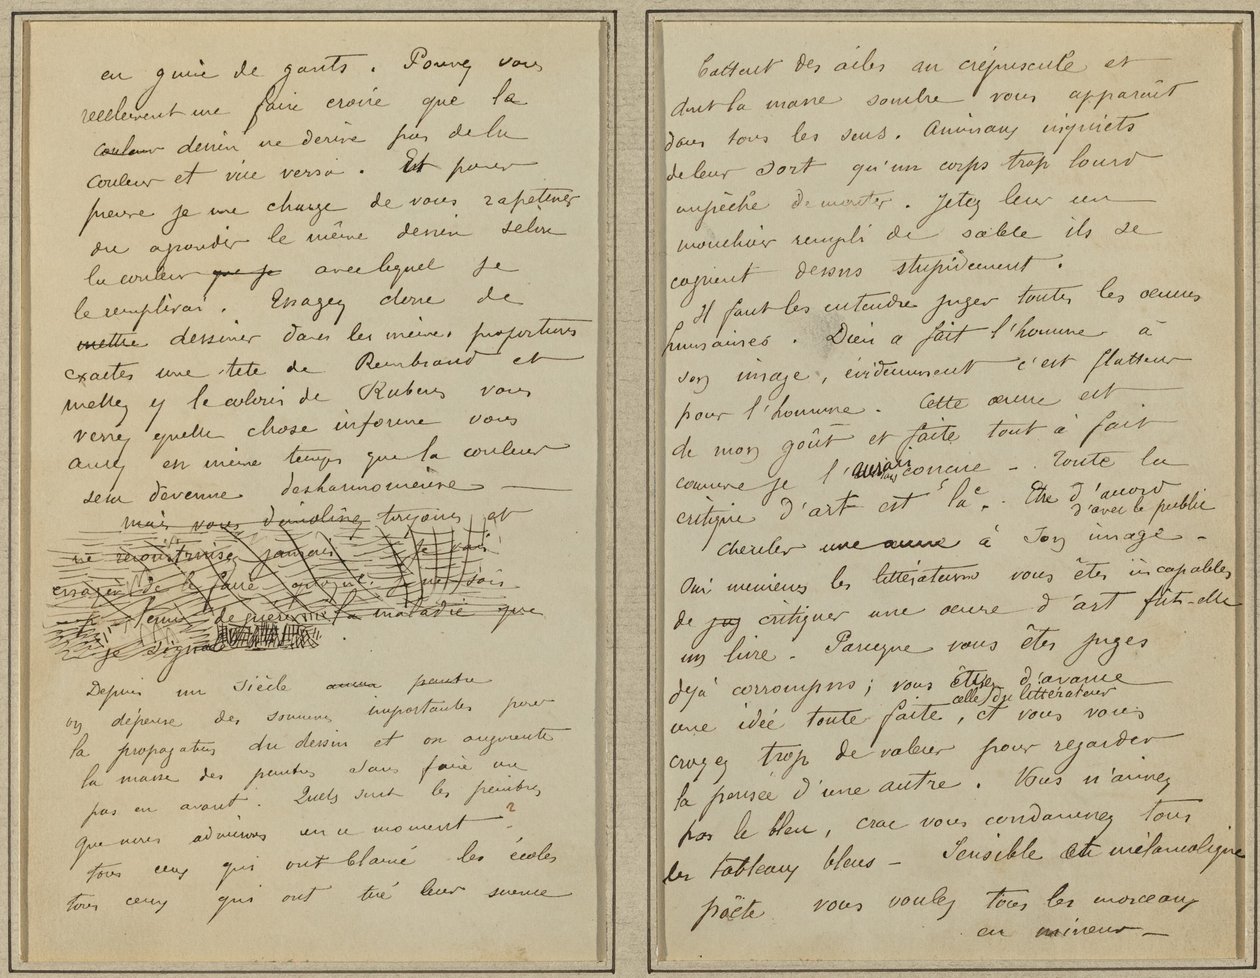 en guise de gants. Pouvez vous
reellement me faire croire que la
couleur dessin ne derive pas de la
couleur et vice versa. Et pour
preuve je me charge de vous rapetisser
ou agrandir le même dessin selon
la couleur que je avec lequel je
le remplirai. Essayez donc de
mettre dessiner dans les mêmes proportions
exactes une tete de Rembrand et
mettez y le coloris de Rubens vous
verrez quelle chose informe vous
aurez en même temps que la couleur
sera devenue desharmonieuse —
mais vous démolissez toujours et
ne reconstruisez jamais Je vais
essayer de le faire
de guerir la maladie que
je signale
Depuis un siècle aucun peintre
on dépense des sommes importantes pour
la propagation du dessin et on augmente
la masse des peintres sans faire un
pas en avant. Quels sont les peintres
que nous admirons en ce moment ?
tous ceux qui ont blamé les écoles
tous ceux qui ont tiré leur science
battent des ailes au crépuscule et
dont la masse sombre vous apparaît
dans tous les sens. Animaux inquiets
de leur sort qu'un corps trop lourd
empêche de monter. Jetez leur un
mouchoir rempli de sable ils se
cognent dessus stupidement.
Il faut les entendre juger toutes les œuvres
humaines. Dieu a fait l'homme à
son image, évidemment c'est flatteur
pour l'homme. Cette œuvre est
de mon goût et faite tout à fait
comme je l'aurais conçue — Toute la
critique d'art est là. Etre d'accord
d'avec le public
chercher une œuvre à son image —
Oui messieurs les littérateurs vous êtes incapables
de jug critiquer une œuvre d'art fût-elle
un livre. Parceque vous êtes juges
déjà corrompus ; vous êtes d'avance
celle du littérateur
une idée toute faite, et vous vous
croyez trop de valeur pour regarder
la pensée d'une autre. Vous n'aimez
pas le bleu, crac vous condamnez tous
les tableaux bleus — Sensible et mélancolique
poëte vous voulez tous les morceaux
en mineur —